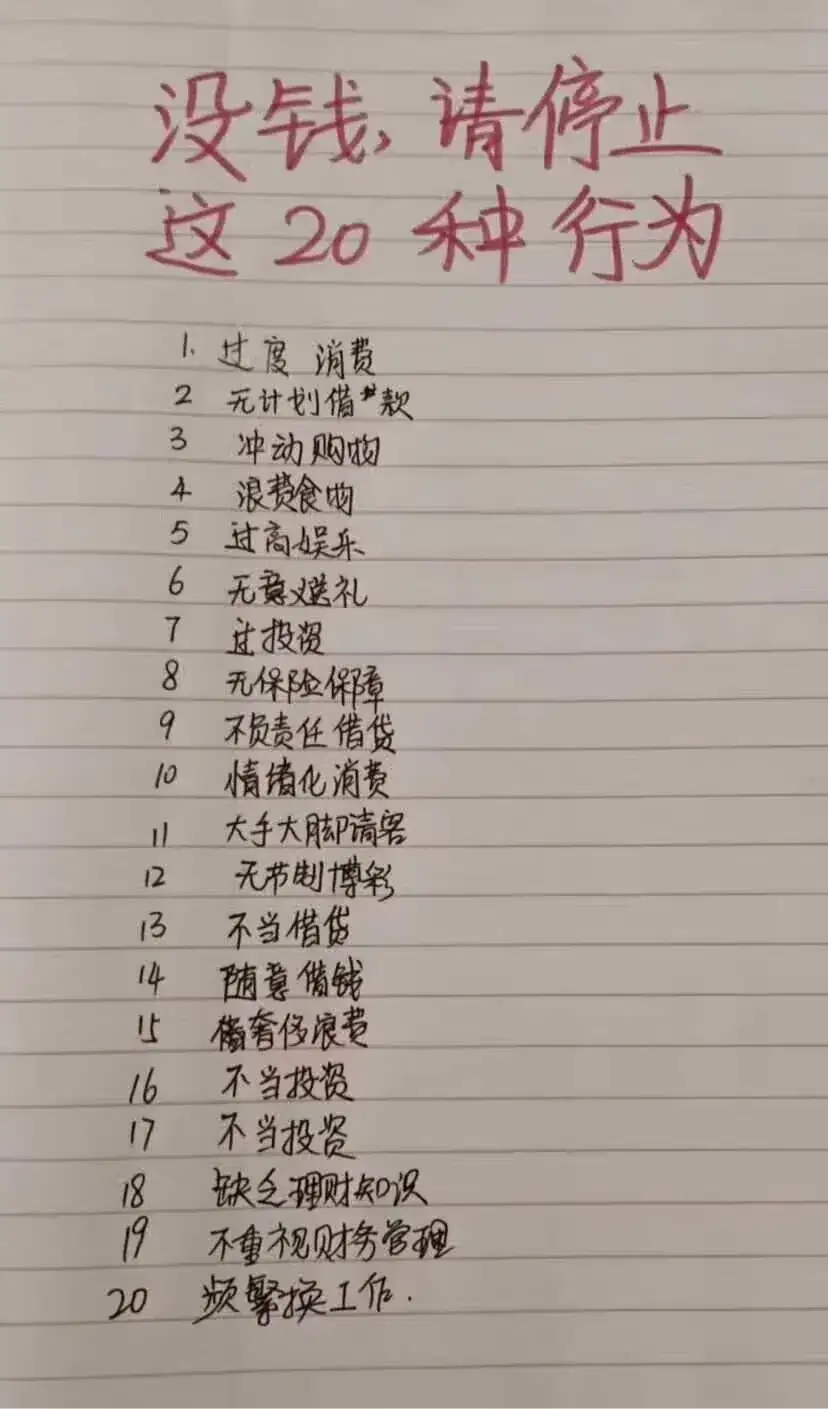 没钱,请停止
这20种行为
1. 过度消费
2 无计划借款
3 冲动购物
4 浪费食物
5 过高娱乐
6 无意义送礼
7 过投资
8 无保险保障
9 不负责任借贷
10 情绪化消费
11 大手大脚请客
12 无节制博彩
13 不当借贷
14 随意借钱
15 奢侈浪费
16 不当投资
17 不当投资
18 缺乏理财知识
19 不重视财务管理
20 频繁换工作.